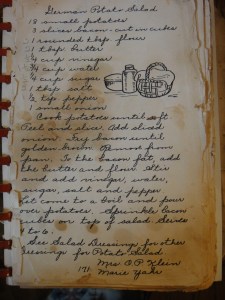 German Potato Salad
12 small potatoes
3 slices bacon - cut in cubes
1 rounded tbsp flour
1 tbsp butter
3/4 cup vinegar
3/4 cup water
1/4 cup sugar
1 tbsp salt
1/2 tsp pepper
1 small onion
Cook potatoes until soft
Peel and slice. Add sliced
onion. Fry bacon until
golden brown. Remove from
pan. To the bacon fat, add
the butter and flour. Stir
and add vinegar, water,
sugar, salt and pepper
Let come to a boil and pour
over potatoes. Sprinkle bacon
cubes on top of salad. Serves
4 to 6.
See Salad Dressing for other
Dressing for Potato Salad
Mrs O.P. Klein
171. Marie